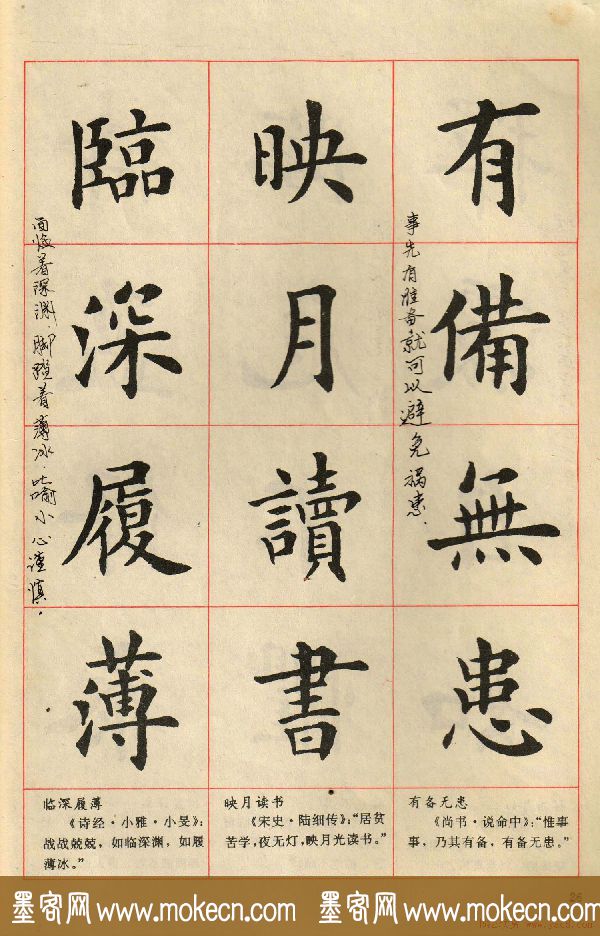 有備無患
事先有准备就可以避免祸患.
映月讀書
臨深履薄
面临着深渊.脚踏着薄冰.比喻小心谨慎.
有备无患
《尚书·说命中》：“惟事
事，乃其有备，有备无患。”
映月读书
《宋史·陆细传》：“居贫
苦学，夜无灯，映月光读书。”
临深履薄
《诗经·小雅·小旻》：
战战兢兢，如临深渊，如履
薄冰。”
26
墨客网 www.mokecn.com 墨客网 www.mokecn.com